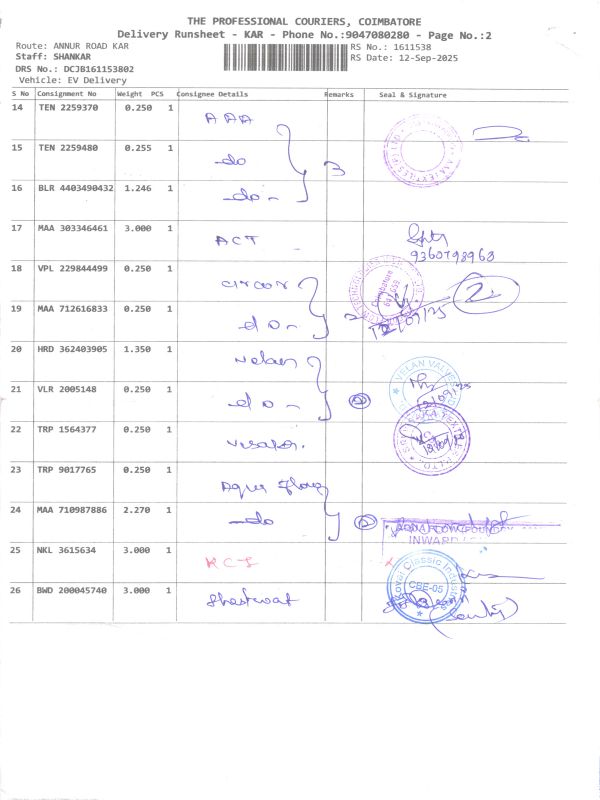 THE PROFESSIONAL COURIERS, COIMBATORE
Delivery Runsheet - KAR - Phone No.:9047080280 - Page No.:2
Route: ANNUR ROAD KAR RS No.: 1611538
Staff: SHANKAR RS Date: 12-Sep-2025
DRS No.: DCJB161153802
Vehicle: EV Delivery
S No Consignment No Weight PCS Consignee Details Remarks Seal & Signature
14 TEN 2259370 0.250 1 AAA
15 TEN 2259480 0.255 1 -do 3
16 BLR 4403490432 1.246 1 -do-
17 MAA 303346461 3.000 1 ACT
9360798968
18 VPL 229844499 0.250 1 Coimbatore 2
19 MAA 712616833 0.250 1 -do- 2 12/09/25
20 HRD 362403905 1.350 1 Velan VELAN VALVES
21 VLR 2005148 0.250 1 -do- 2 12/09/25
22 TRP 1564377 0.250 1
23 TRP 9017765 0.250 1 Aqua
24 MAA 710987886 2.270 1 -do 2 FOUNDRY
INWARD
25 NKL 3615634 3.000 1 KCI x
26 BWD 200045740 3.000 1 Shastwat Classic Industries CBE-05